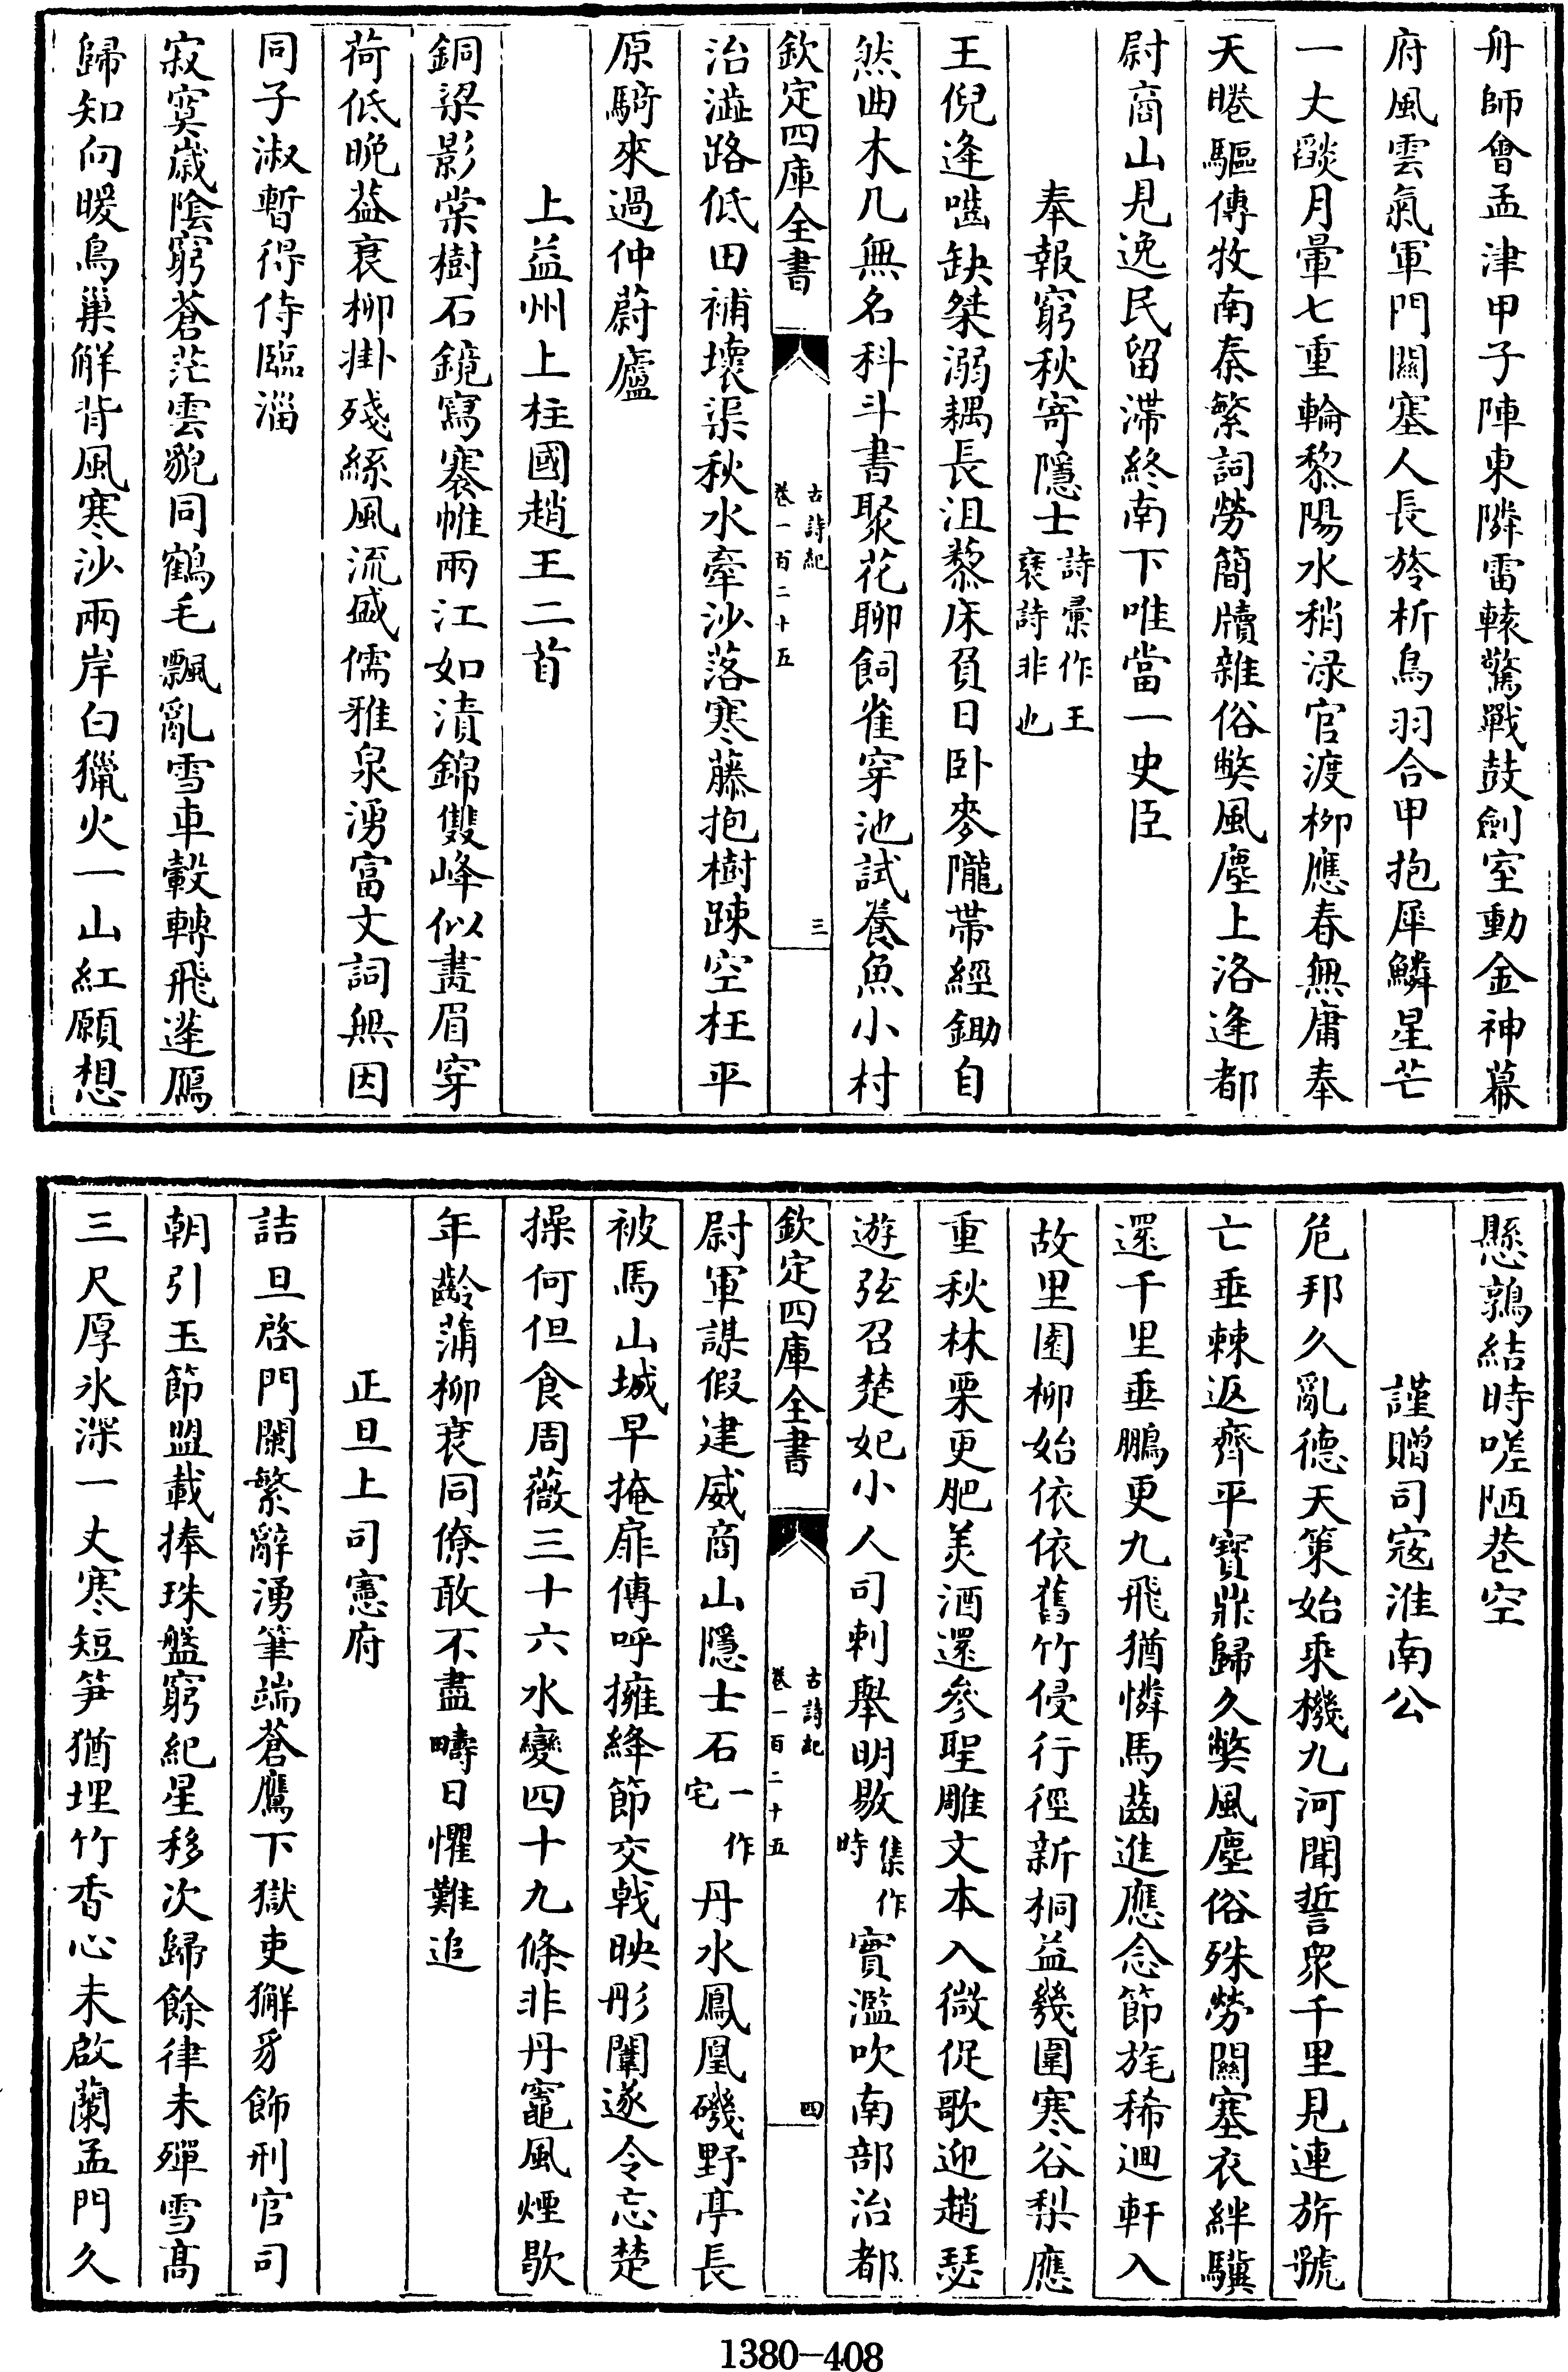 舟師會孟津甲子陣東隣雷轅驚戰鼓劍室動金神幕
府風雲氣軍門關塞人長旍析鳥羽合甲抱犀鱗星芒
一丈燄月暈七重輪黎陽水稍渌官渡栁應春無庸奉
天睠驅傳牧南秦繁詞勞簡牘雜俗弊風塵上洛逢都
尉商山見逸民留滯終南下唯當一史臣
奉報窮秋寄隱士詩彚作王褒詩非也
王倪逢囓缺桀溺耦長沮藜床負日卧麥隴帶經鋤自
然曲木几無名科斗書聚花聊飼雀穿池試養魚小村
欽定四庫全書
古詩紀
卷一百二十五
三
治澁路低田補壞渠秋水牽沙落寒藤抱樹踈空枉平
原騎來過仲蔚廬
上益州上柱國趙王二首
銅梁影棠樹石鏡寫褰帷兩江如漬錦雙峰似畫眉穿
荷低晩葢衰柳掛殘絲風流盛儒雅泉湧富文詞無因
同子淑暫得侍臨淄
寂寞歲陰窮蒼茫雲貌同鶴毛飄亂雪車轂轉飛蓬鴈
歸知向暖鳥巢觧背風寒沙兩岸白獵火一山紅願想
懸鶉結時嗟陋巷空
謹贈司寇淮南公
危邦久亂德天策始乘機九河聞誓衆千里見連旂號
亡垂棘返齊平寶鼎歸久弊風塵俗殊勞關塞衣絆驥
還千里垂鵬更九飛猶憐馬齒進應念節旄稀迴軒入
故里園柳始依依舊竹侵行徑新桐益幾圍寒谷梨應
重秋林栗更肥美酒還參聖雕文本入微促歌迎趙瑟
遊弦召楚妃小人司刺舉明敭集作時實濫吹南部治都
欽定四庫全書
古詩紀
卷一百二十五
四
尉軍謀假建威商山隱士石一作宅丹水鳳凰磯野亭長
被馬山城早掩扉傳呼擁絳節交戟映彤闈遂令忘楚
操何但食周薇三十六水變四十九條非丹竈風煙歇
年齡蒲柳衰同僚敢不盡疇日懼難追
正旦上司憲府
詰旦啓門闌繁辭湧筆端蒼鷹下獄吏獬豸飾刑官司
朝引玉節盟載捧珠盤窮紀星移次歸餘律未殫雪高
三尺厚氷深一丈寒短笋猶埋竹香心未啟蘭孟門久
1380-408